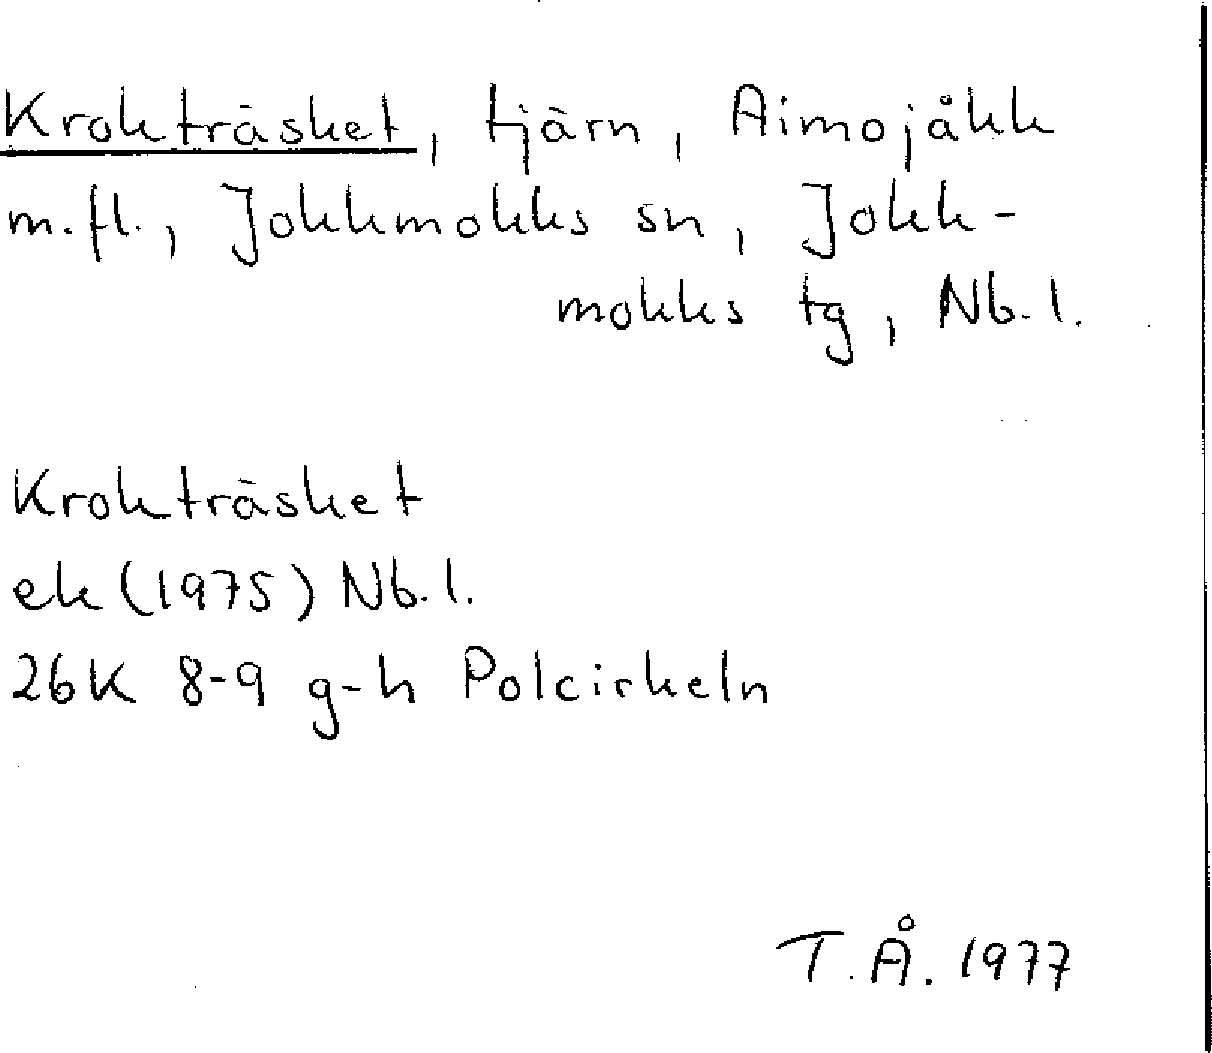 Krokträsket, tjärn, Aimojåkk
m.fl., Jokkmokks sn, Jokk-
mokks tg, Nb.l.
Krokträsket
ek (1975) Nb.l.
26K 8-9 g-h Polcirkeln
T.Å. 1977